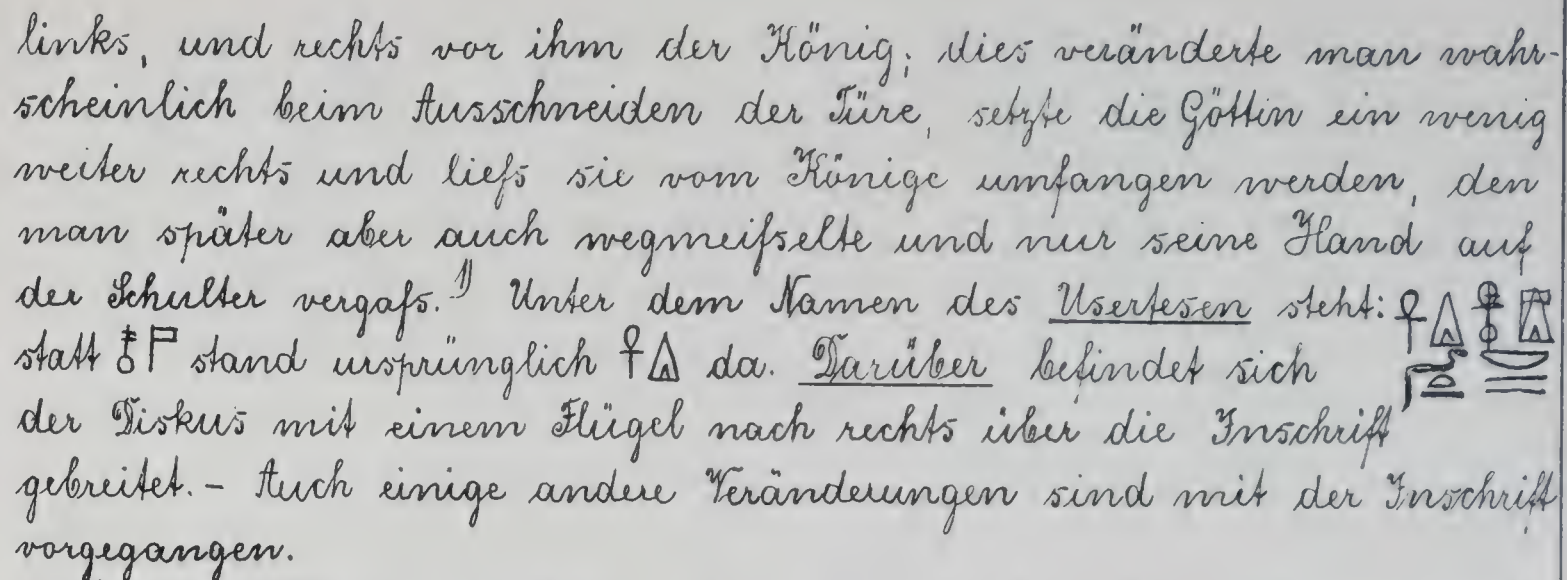 links, und rechts vor ihm der König; dies veränderte man wahr-
scheinlich beim Ausschneiden der Türe, setzte die Göttin ein wenig
weiter rechts und liefs sie vom Könige umfangen werden, den
man später aber auch wegmeifselte und nur seine Hand auf
der Schulter vergafs.¹⁾ Unter dem Namen des Usertesen steht:
statt 𓄤𓊹 stand ursprünglich 𓋹𓏙 da. Darüber befindet sich
der Diskus mit einem Flügel nach rechts über die Inschrift
gebreitet. – Auch einige andere Veränderungen sind mit der Inschrift
vorgegangen.